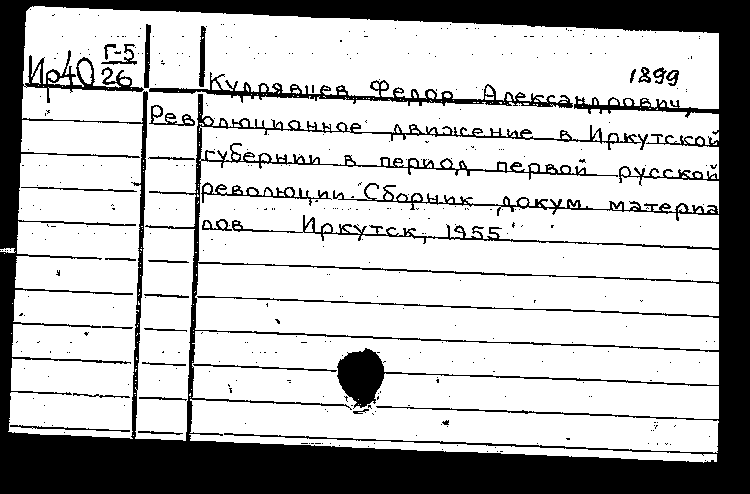 Ир40 Г-5
26
1899
Кудрявцев, Федор Александрович,
Революционное движение в Иркутской
губернии в период первой русской
революции. Сборник докум. материа
лов Иркутск, 1955